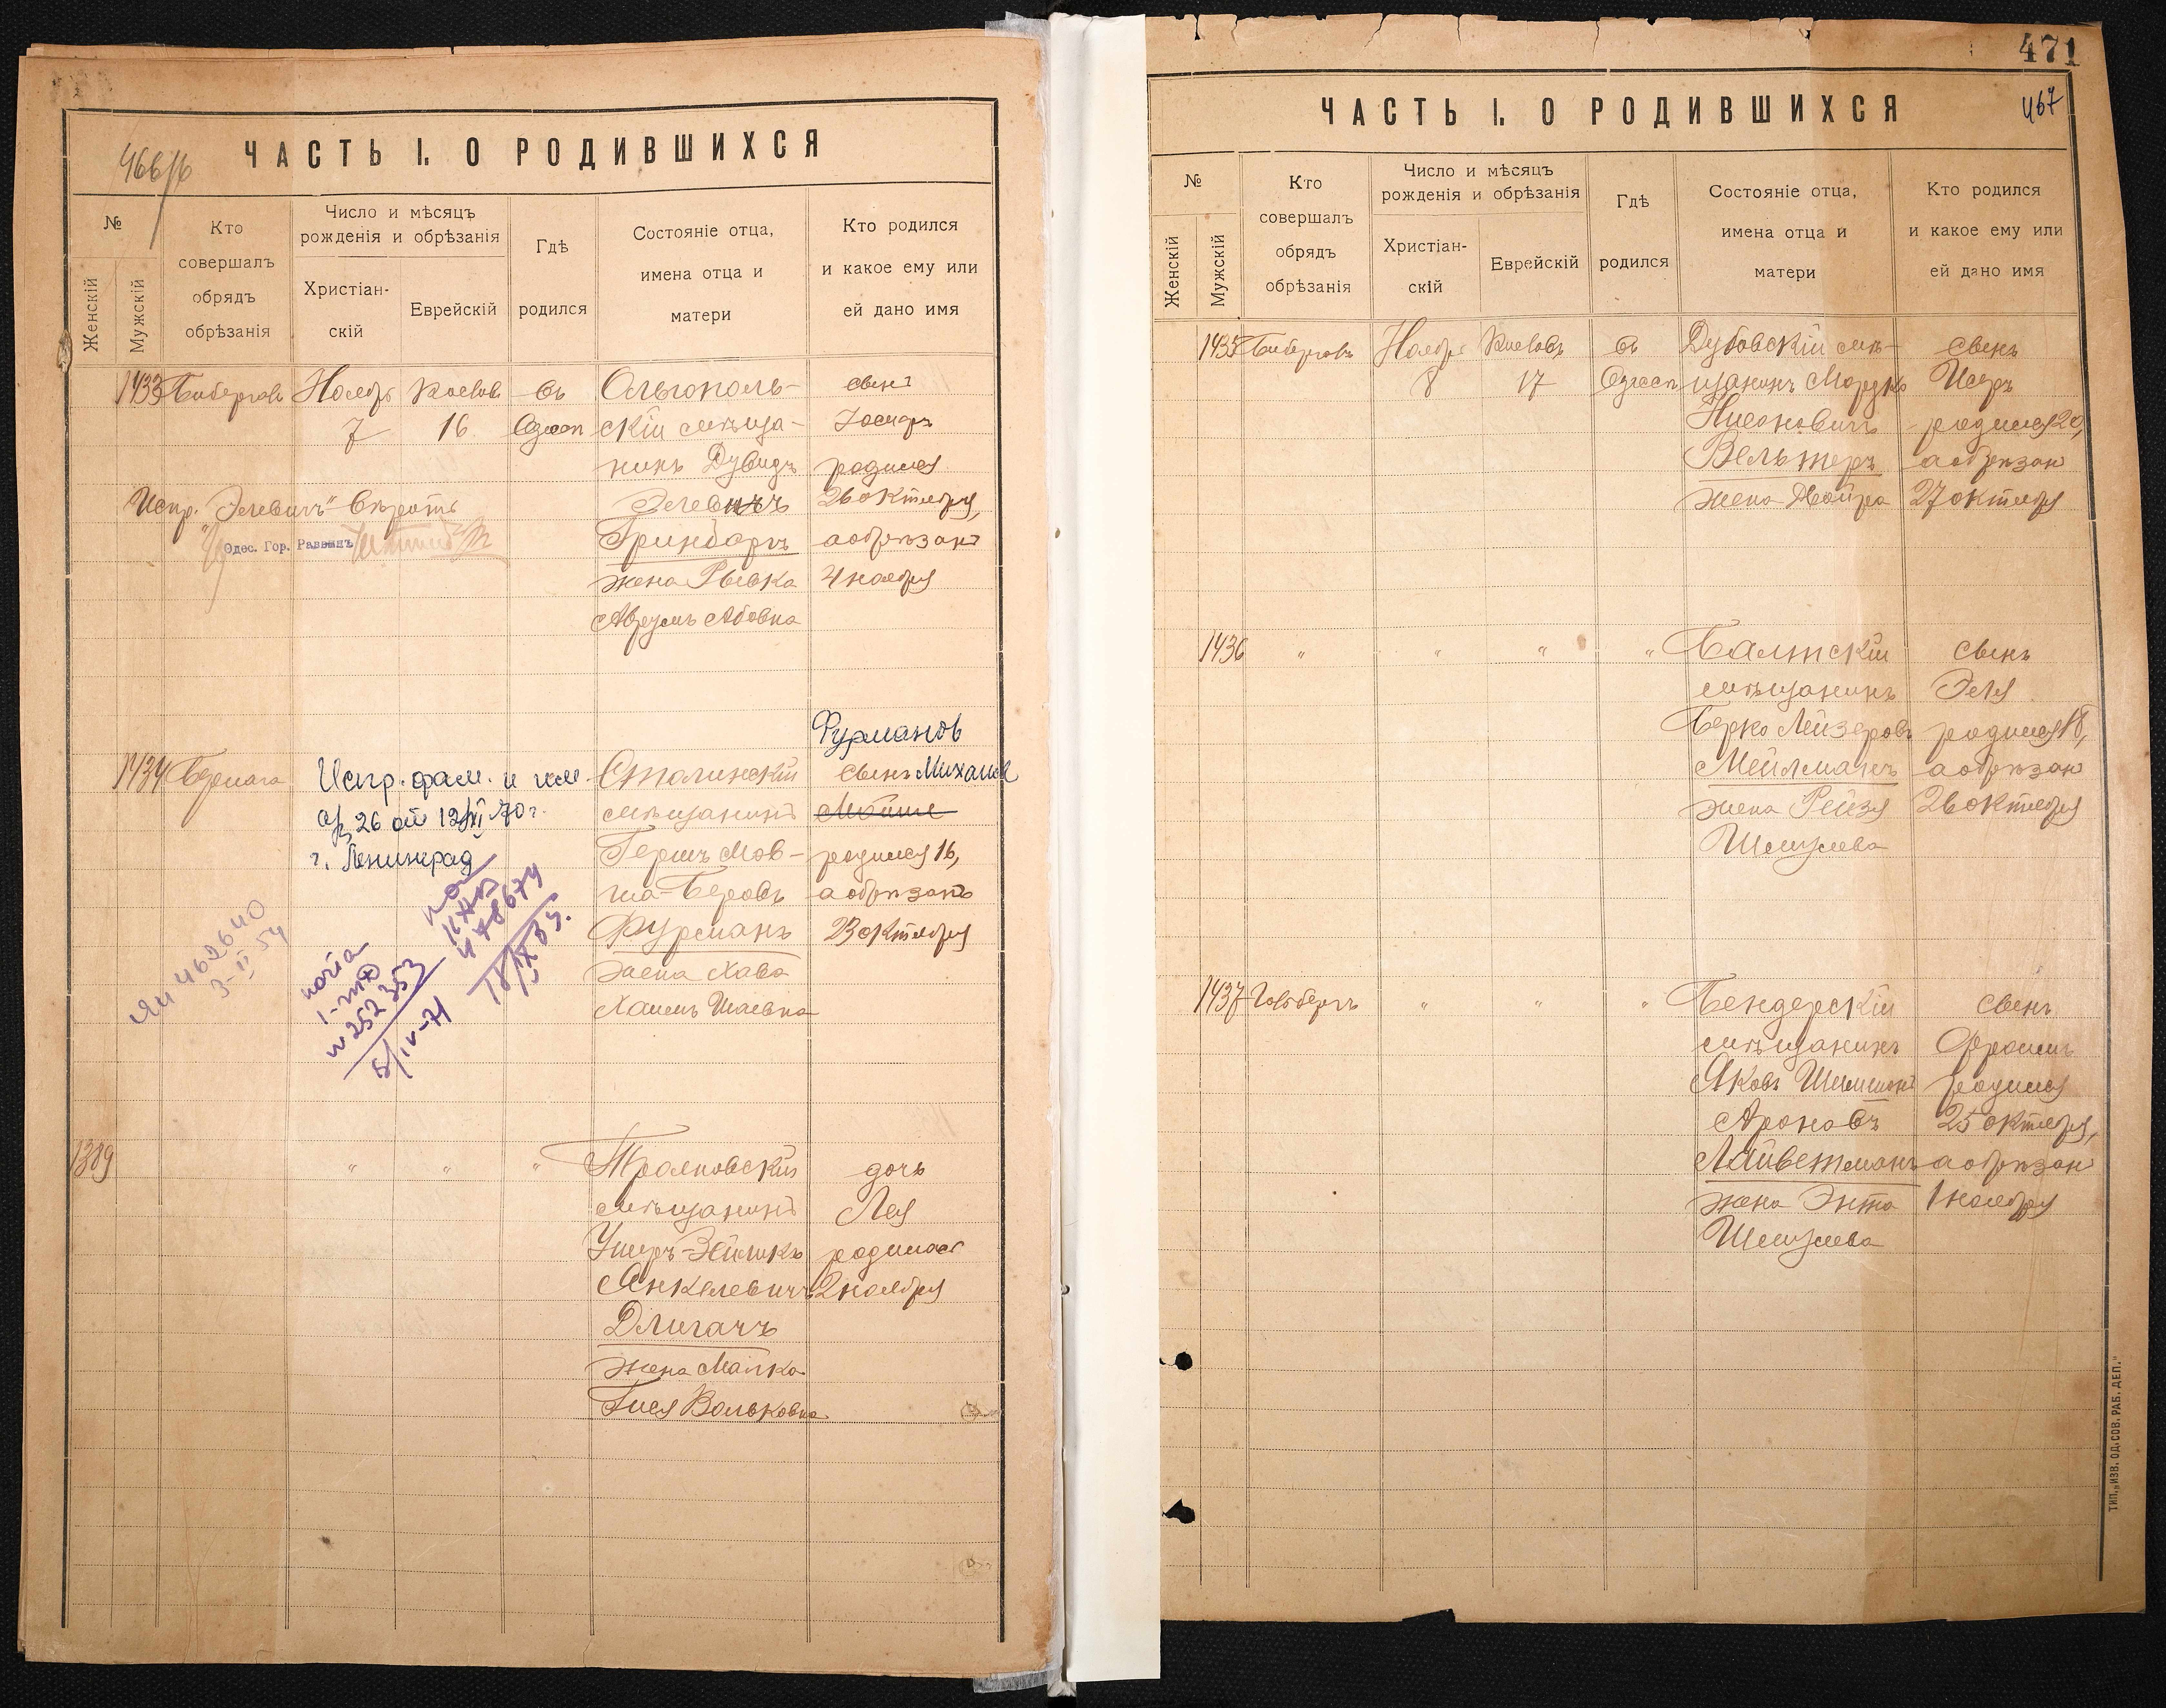 466/б
ЧАСТЬ I. О РОДИВШИХСЯ
№
Женскій
Мужскій
Кто
совершалъ
обрядъ
обрѣзанія
Число и мѣсяцъ
рожденія и обрѣзанія
Христіан-
скій
Еврейскій
Гдѣ
родился
Состояніе отца,
имена отца и
матери
Кто родился
и какое ему или
ей дано имя
1433
Ноябрь
7
Кислов
16
въ
Одессѣ
Ольгополь-
скій мѣща-
нинъ Дувидъ
Элевичъ
Гринбаръ
жена Рывка
сынъ
родился
26 октября,
а обрѣзанъ
4 ноября
Испр. "Элевичъ" вѣрить
Одес. Гор. Раввинъ
1434
Испр. фам. и им.
а/з 26 от 12/XI 70 г.
г. Ленинград
Столинскій
мѣщанинъ
Гершъ Мов-
ша-Беровъ
Фурманъ
жена Хава
Фурманов
сынъ Михаил
родился 16,
а обрѣзанъ
23 октября
462640
3-II 54
N 252353
5/IV-71
1389
"
"
"
мѣщанинъ
Янкелевичъ
Длигачъ
жена Малка
Гися Вольковна
дочь
Лея
родилась
2 ноября
471
467
ЧАСТЬ I. О РОДИВШИХСЯ
№
Женскій
Мужскій
Кто
совершалъ
обрядъ
обрѣзанія
Число и мѣсяцъ
рожденія и обрѣзанія
Христіан-
скій
Еврейскій
Гдѣ
родился
Состояніе отца,
имена отца и
матери
Кто родился
и какое ему или
ей дано имя
1435
Ноябрь
8
Кисловъ
17
въ
Одессѣ
Дубовскій мѣ-
щанинъ Мордко
Нисоновичъ
Вельтеръ
жена Двойра
сынъ
Исеръ
родился 20,
а обрѣзан
27 октября
1436
"
"
"
"
Балтскій
мѣщанинъ
Берко Лейзеровъ
Мейлманъ
жена Рейзя
Шмулева
сынъ
Эля
родился 18,
а обрѣзан
26 октября
1437
Гольбергъ
"
"
"
Бендерскій
мѣщанинъ
Яковъ Шимшонъ
Ароновъ
Лайветманъ
жена Энта
Шмулева
сынъ
Фроимъ
родился
25 октября,
а обрѣзан
1 ноября
ТИП. „ИЗВ. ОД. СОВ. РАБ. ДЕП."